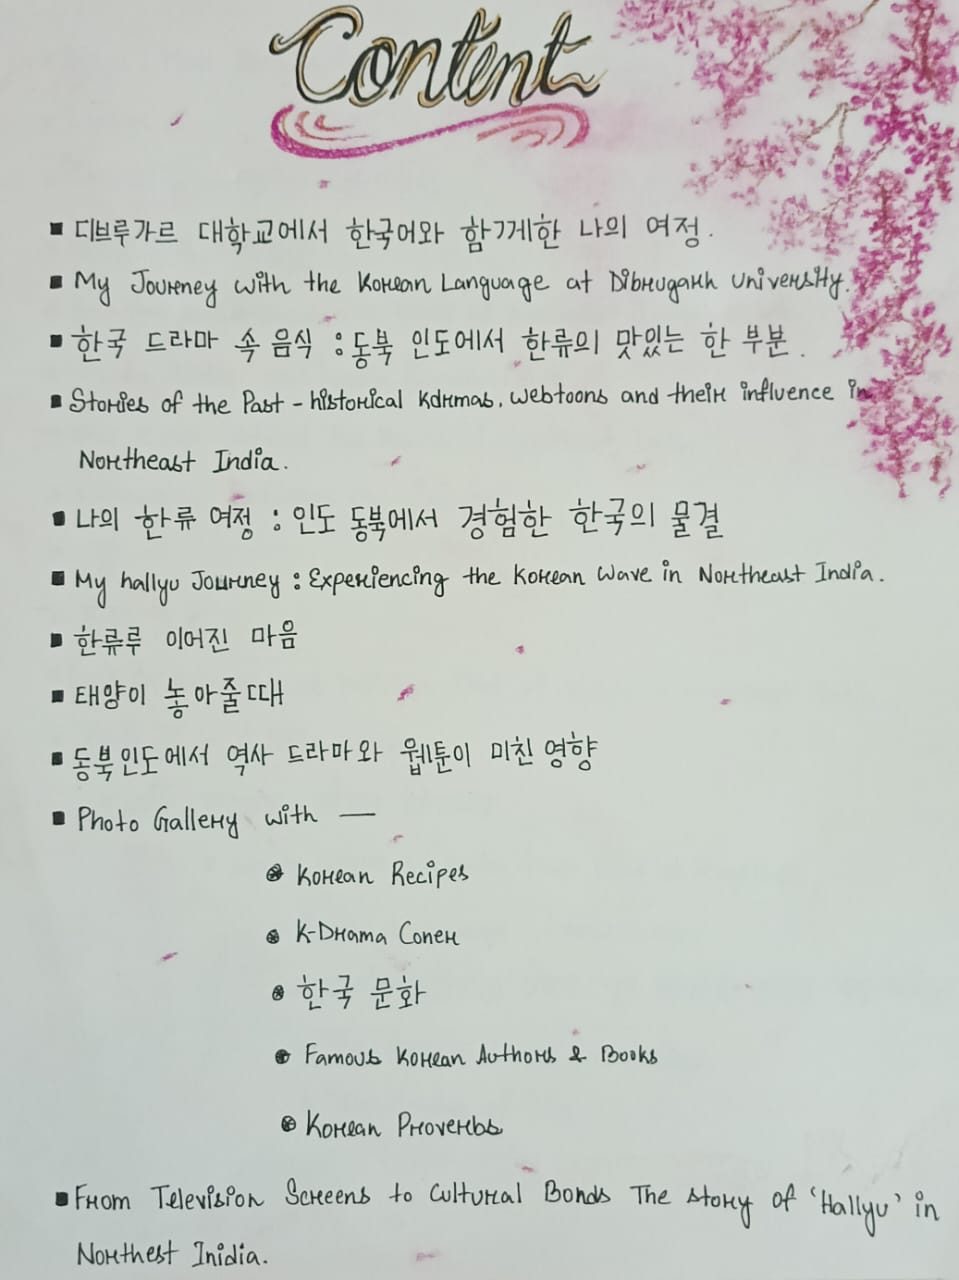 Content
디브루가르 대학교에서 한국어와 함께한 나의 여정.
My Journey with the Korean Language at Dibrugarh University.
한국 드라마 속 음식 : 동북 인도에서 한류의 맛있는 한 부분.
Stories of the Past - historical Kdrmas, webtoons and their influence in
Northeast India.
나의 한류 여정 : 인도 동북에서 경험한 한국의 물결
My hallyu Journey : Experiencing the Korean Wave in Northeast India.
한류루 이어진 마음
태양이 놓아줄때
동북인도에서 역사 드라마와 웹툰이 미친 영향
Photo Gallery with —
Korean Recipes
K-Drama Coner
한국 문화
Famous Korean Authors & Books
Korean Proverbs
From Television Screens to Cultural Bonds The story of 'Hallyu' in
Northest Inidia.